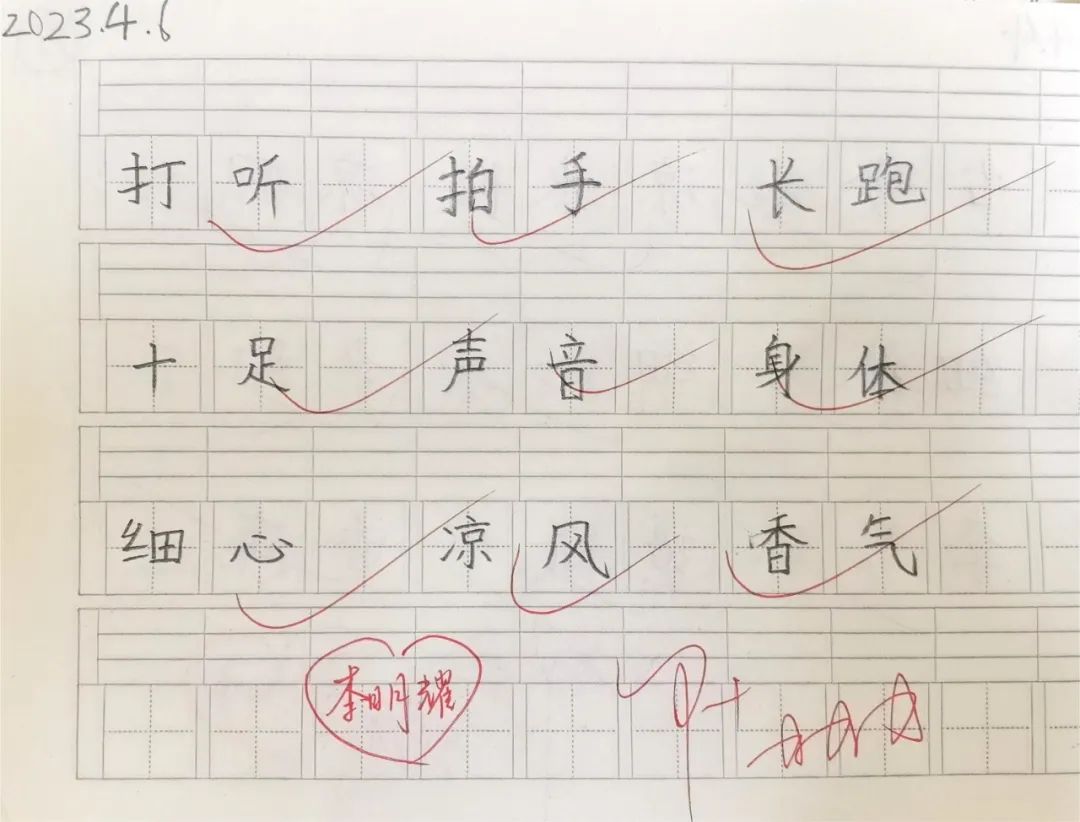 2023.4.6
打听 拍手 长跑
十足 声音 身体
细心 凉风 香气
李明耀